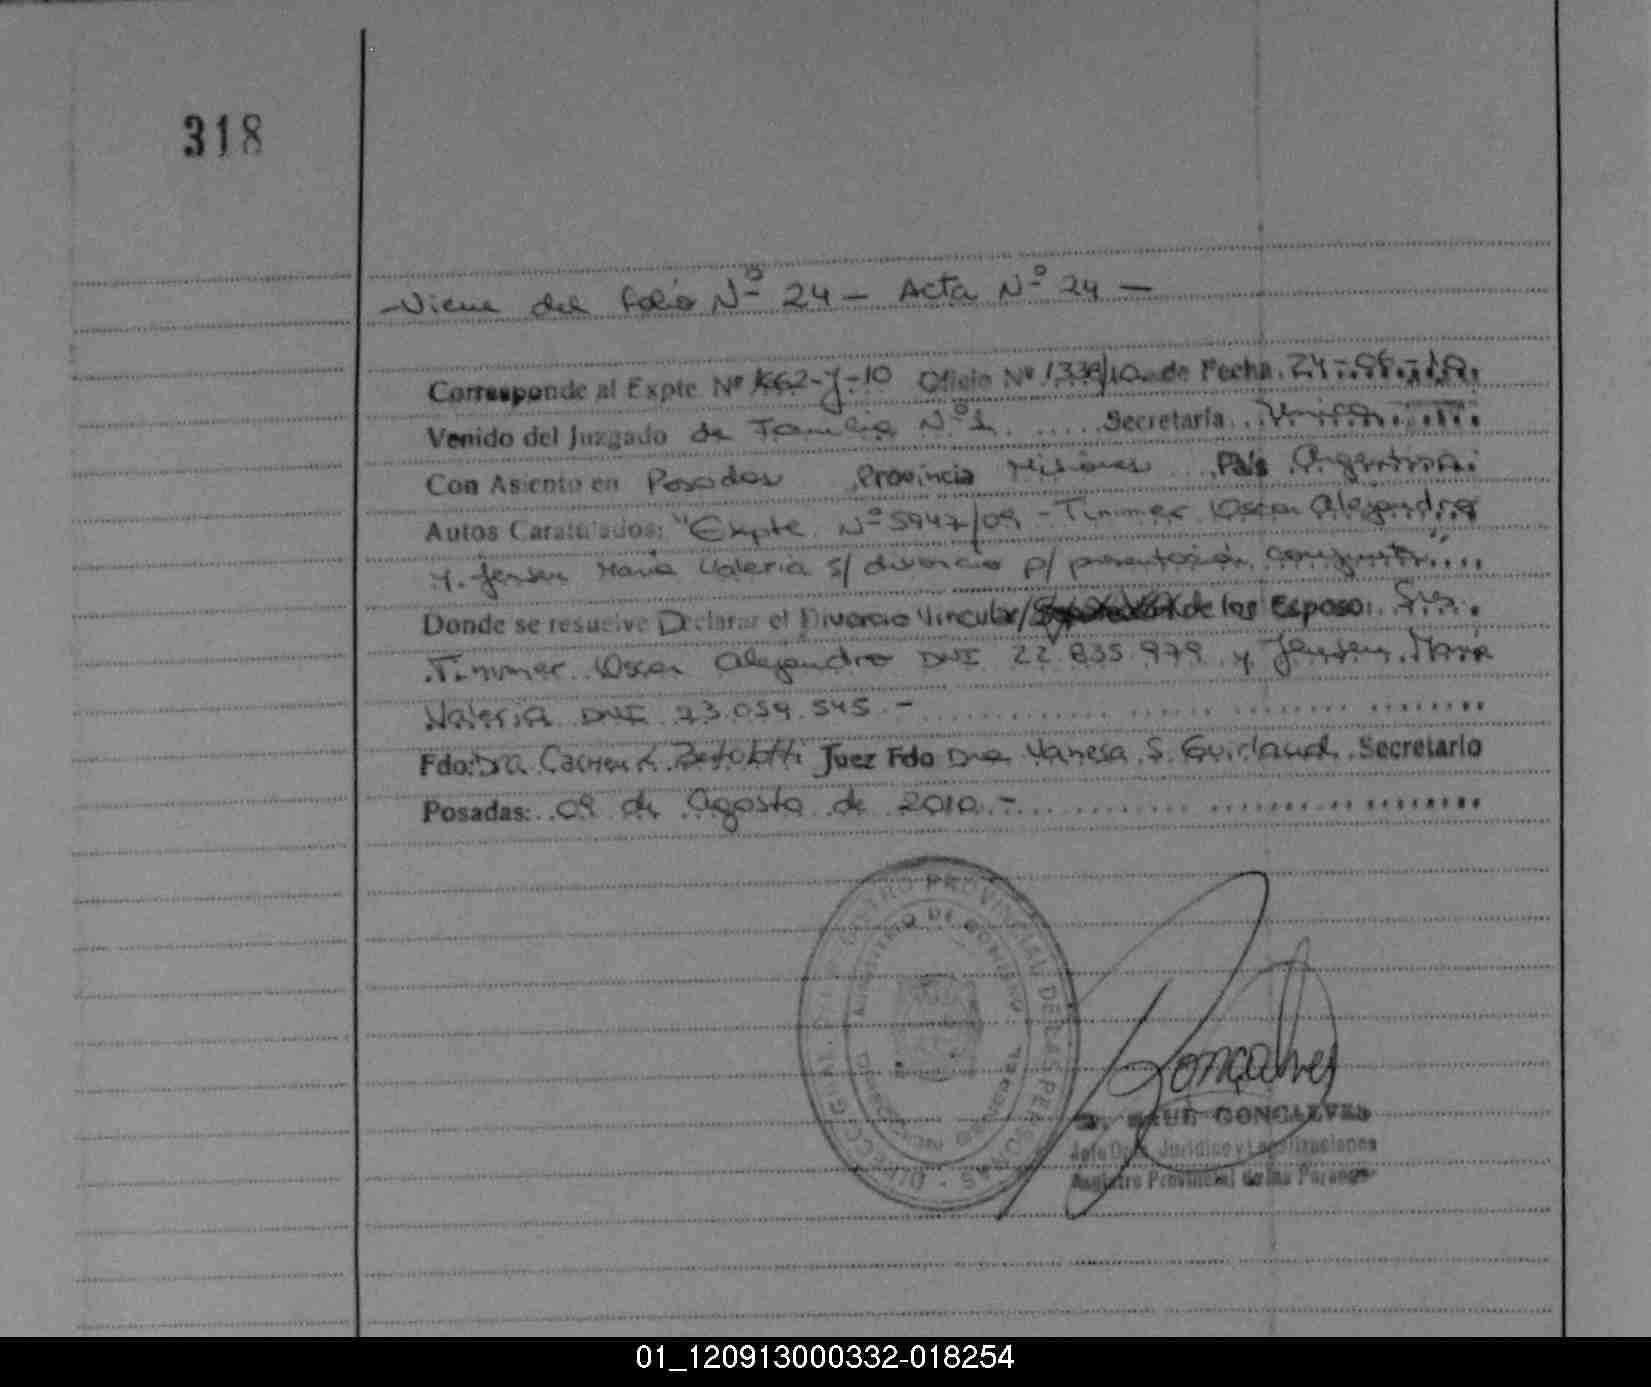 318
-Viene del folio Nº 24 - Acta Nº 24 -
Corresponde al Expte. Nº 1662-J-10 Oficio Nº 1338/10 de Fecha 24-06-10
Venido del Juzgado de Familia Nº 1 Secretaría Única
Con Asiento en Posadas Provincia Misiones País Argentina
Autos Caratulados: "Expte. Nº 5947/09 - Timmer Oscar Alejandro
y Jensen María Valeria s/ divorcio p/ presentación conjunta"
Donde se resuelve Declarar el Divorcio Vincular/ de los Esposos: Sres.
Timmer Oscar Alejandro DNI 22.835.979 y Jensen María
Valeria DNI 23.059.545.-
Fdo: Dra. Carmen Juez Fdo Dra Vanesa S. Guirland Secretario
Posadas: 09 de Agosto de 2010.-
DIRECCION GRAL. DEL REGISTRO PROVINCIAL DE LAS PERSONAS
MINISTERIO DE GOBIERNO
Goncalves
GONCALVES
Jefe Dpto. Jurídico y Legalizaciones
Registro Provincial de las Personas
01_120913000332-018254